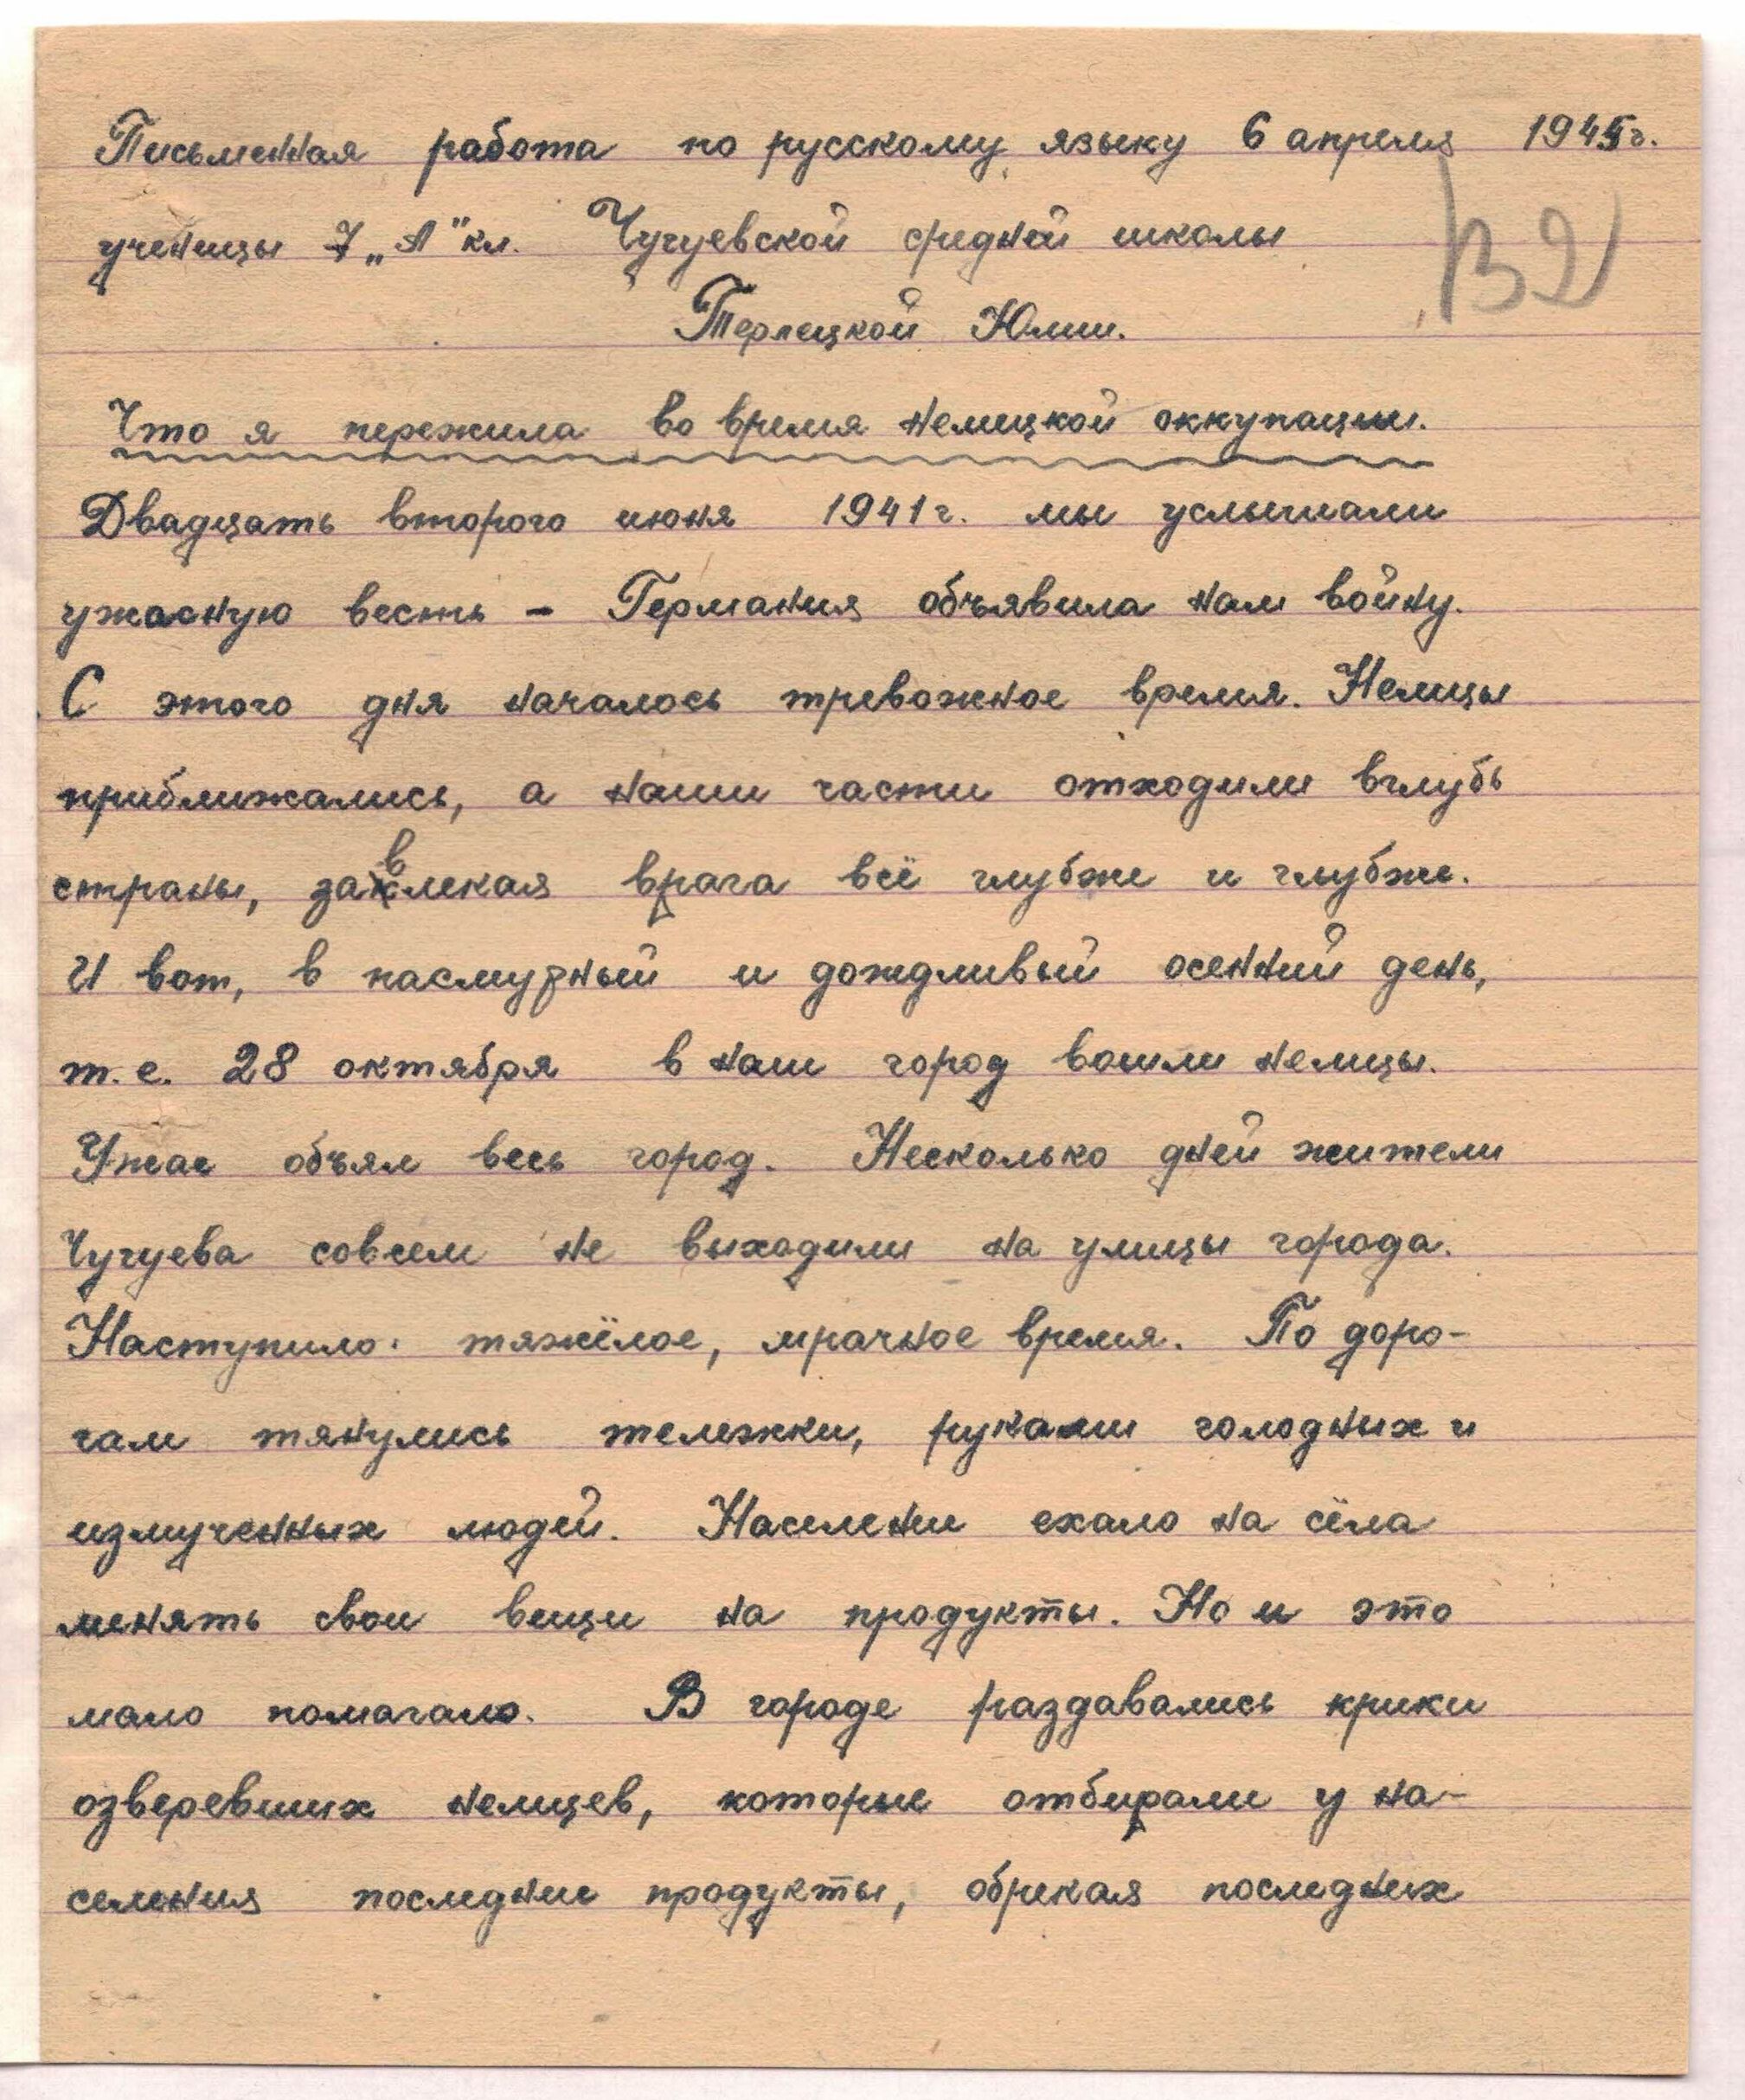 Письменная работа по русскому языку 6 апреля 1945г.
ученицы 7 „А" кл. Чугуевской средней школы
Терлецкой Юлии.
Что я пережила во время немецкой оккупации.
Двадцать второго июня 1941г. мы услышали
ужасную весть – Германия объявила нам войну.
С этого дня началось тревожное время. Немцы
приближались, а наши части отходили вглубь
страны, завлекая врага всё глубже и глубже.
И вот, в пасмурный и дождливый осенний день,
т.е. 28 октября в наш город вошли немцы.
Ужас объял весь город. Несколько дней жители
Чугуева совсем не выходили на улицы города.
Наступило тяжёлое, мрачное время. По доро-
гам тянулись тележки, руками голодных и
измученных людей. Населени ехало на сёла
менять свои вещи на продукты. Но и это
мало помагало. В городе раздавались крики
озверевших немцев, которые отбирали у на-
селения последние продукты, обрекая последних